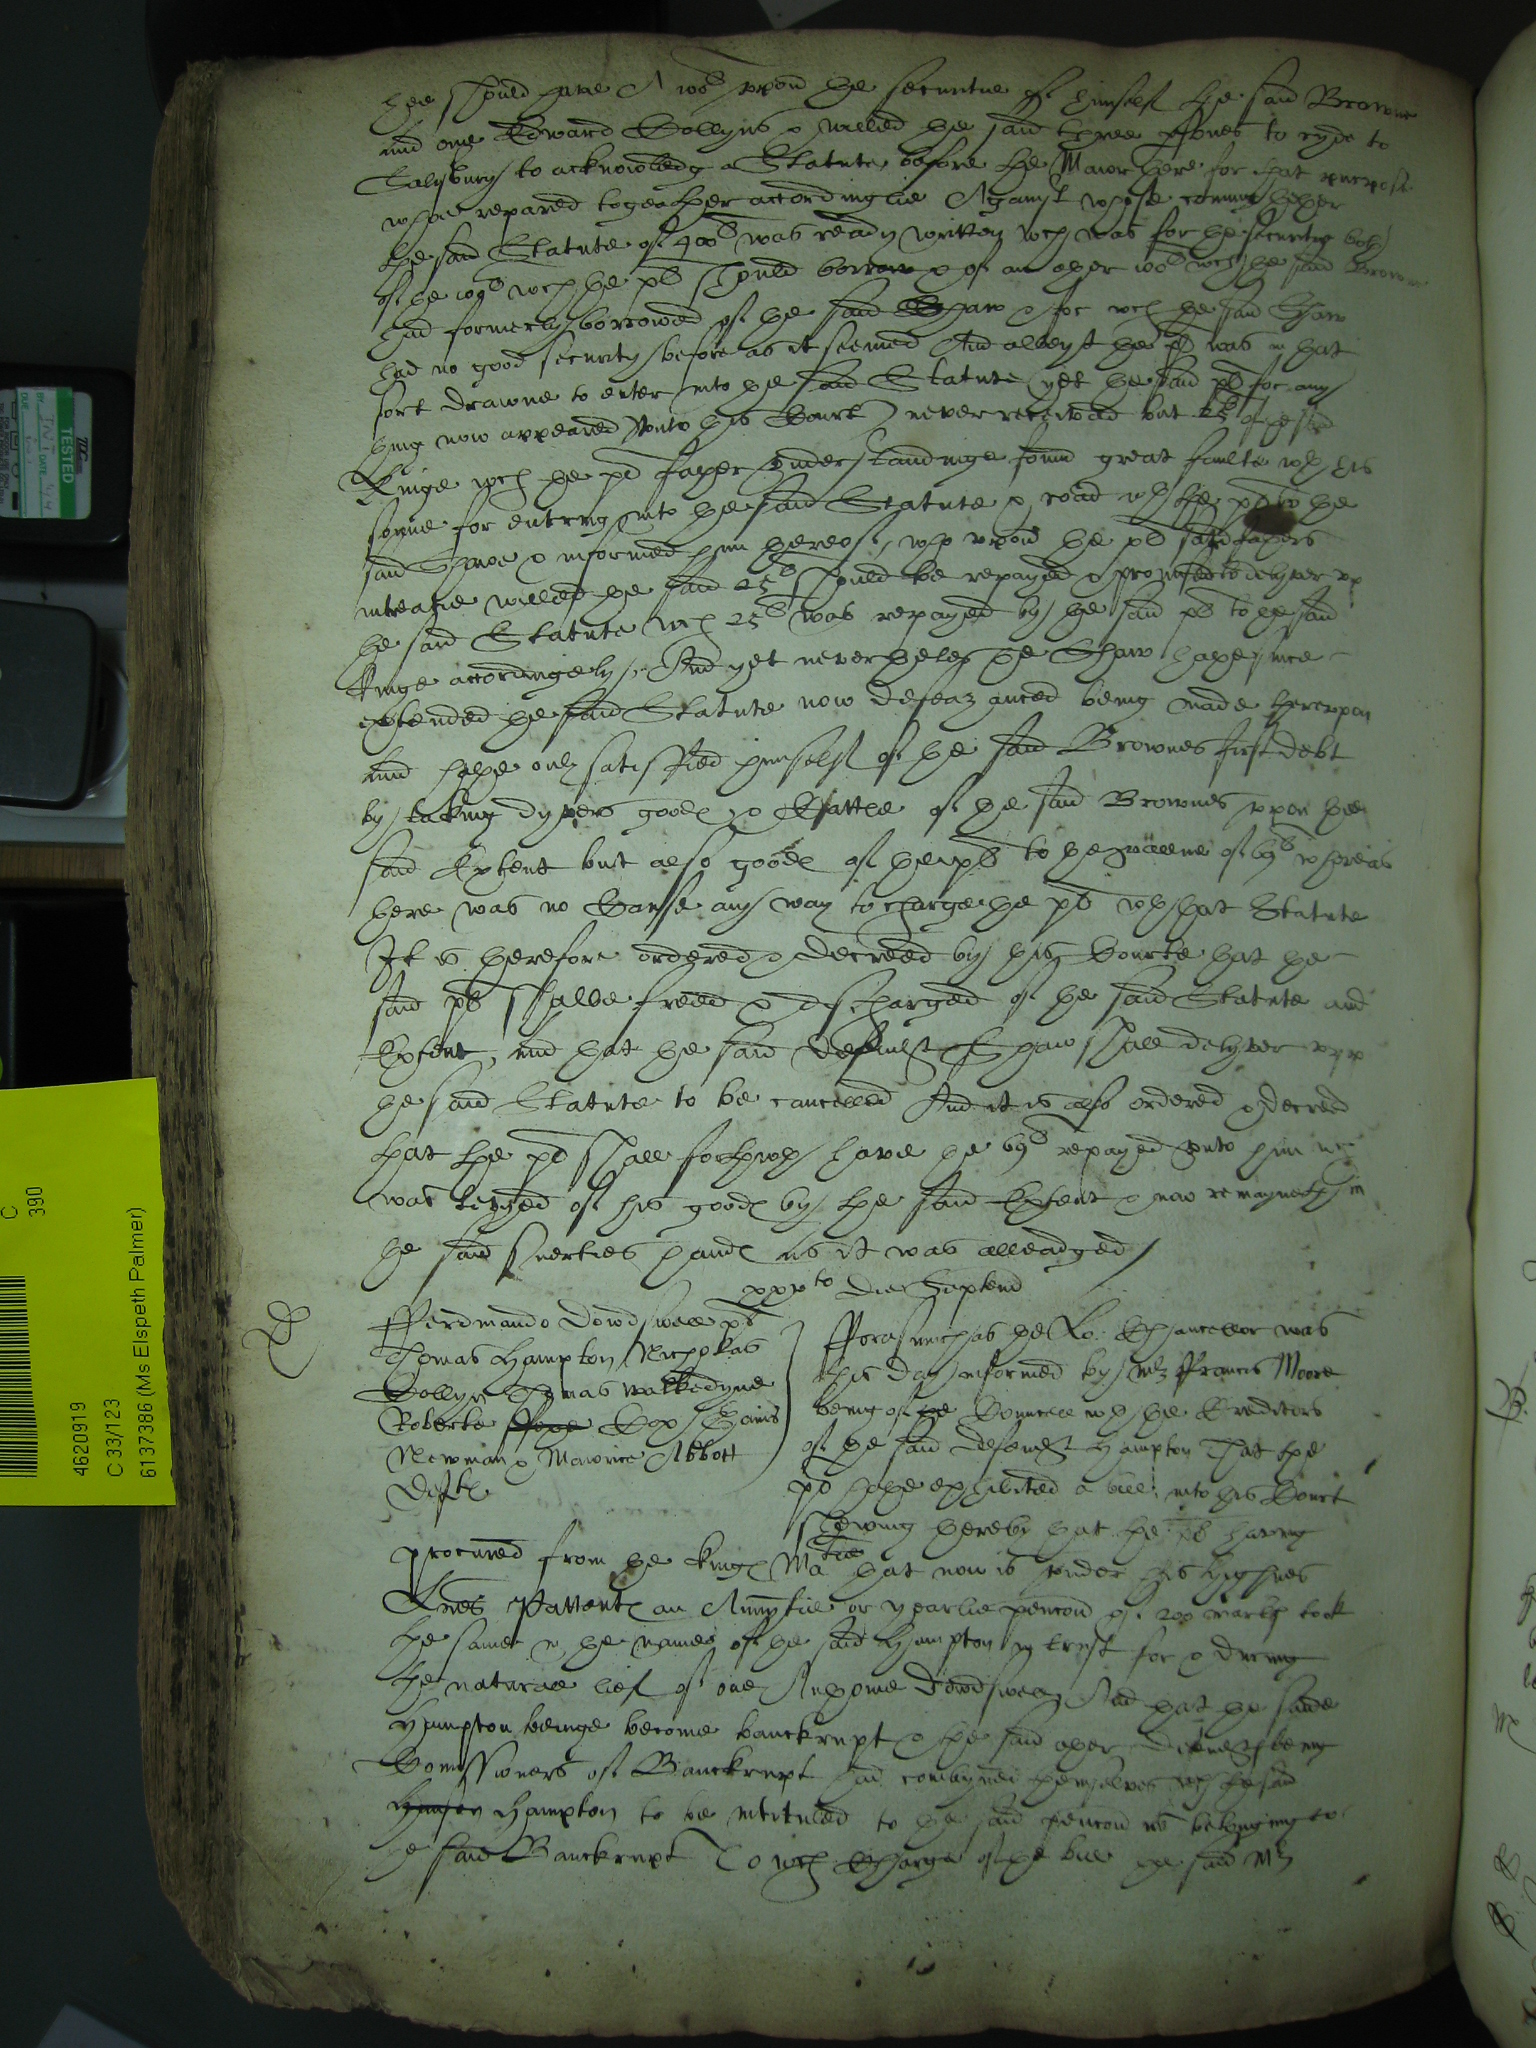 hee should have A 100l uppon the securitie of himself the said Browne
and one Edward Collyns & willed the said three psones to ryde to
Salisbury to acknowledg a Statute before the Maior there for that purpose
whoe repared togeather accordinglie Against whose comming thether
the said Statute of 400l was ready written wch was for the security both
of the 100l wch the pl should borrow & of an other 100l wch the said Browne
had formerly borrowed of the said Shaw & for wch the said Shaw
had no good security before as it seemed And albeyt the pl was in that
sort drawne to enter into the said Statute yet the said pl for any
thing now appeared unto this Court never receiwed but 25l of the said
Kinge wch the pl father understandinge found great faulte wth his
sonne for entring into the said Statute & road wth the pl to the
said Shawe & informed him thereof, who uppon the pl said fathers
intreatie willed the said 25l should be repayed & promised to delyver up
the said Statute wch 25l was repayed by the said pl to the said
Kinge accordingely. And yet neverthelesse the Shaw hathe since
extended the said Statute now defeazanced being made thereupon
and hathe only satisffied himself of the said Brownes first debt
by taking dyvers goodes & Chattle of the said Brownes uppon the
said Extent but also goodes of the pl to the vallue of 69l whereas
there was no Cause any way to charge the pl wth that Statute
It is therefore ordered & decreed by this Courte that the
said pl shalbe freed & discharged of the said Statute and
Extent, and that the said defendt Shaw shall delyver upp
the said Statute to be cancelled And it is also ordered & decreed
that the pl shall forthwth have the 69l repayed unto him wch
was levyed of his goodes by the said Extent & now remayneth in
the said suerties handes as it was alleadged
xxxto die Septemb
Fferdinando Dowdswell pl
Thomas Hampton Nicholas
Collyn Thomas Walkedyne
Roberte Cox
Newman & Maurice Abbott
Defts
Fforasmuchas the Lo: Chancellor was
this day informed by Mr Ffrancis Moore
being of the Councell wth the Creditors
of the said defendt Hampton That the
pl hathe exhibited a bill into this Court
shewing thereby that the pl having
procured from the kinges Matie that now is under his highnes
Lres Pattentes an Annytie or yearlie pencion of 200 markes took
the same in the names of the said Hampton in trust for & during
the naturall lief of one Dowdswell And that the saide
Hampton beinge become banckrupt & the said other defendts being
Comissioners of Banckrupt had combyned themselves wth the said
Hampton to be intituled to the said pencion as belonging to
the said Banckrupt To wch Charge of the bill the said Mr
C
390
4620919
C 33/123
6137386 (Ms Elspeth Palmer)
TESTED
BY
DATE
DUE